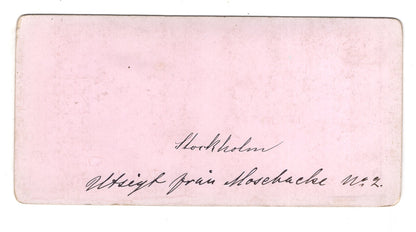 Stockholm
Utsigt från Mosebacke No. 2.